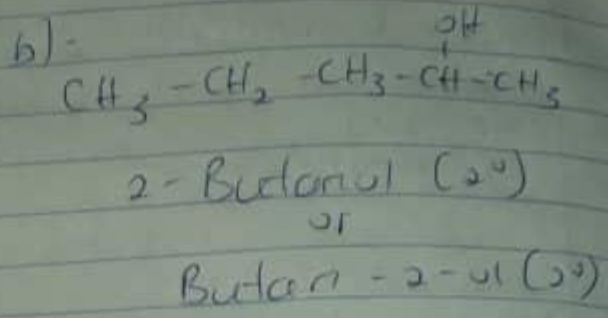 b).
OH
CH3 - CH2 - CH3 - CH - CH3
2 - Butanol (2º)
or
Butan - 2 - ol (2º)